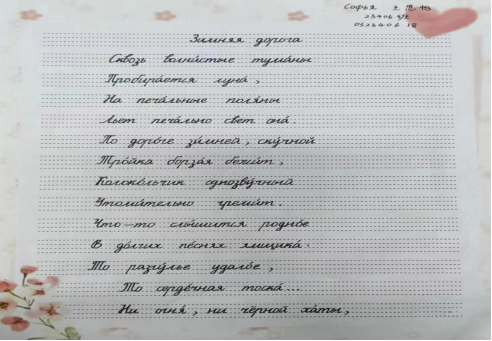 Софья 王思
Зимняя дорога
Сквозь волни́стые тума́ны
Пробира́ется луна́,
На печа́льные поля́ны
Льет печа́льно свет она́.
По доро́ге зи́мней, ску́чной
Тро́йка борза́я бежи́т,
Колоко́льчик однозву́чный
Утоми́тельно греми́т.
Что-то слы́шится родно́е
В до́лгих пе́снях ямщика́.
То разгу́лье удало́е,
То серде́чная тоска́...
Ни огня́, ни чёрной ха́ты,